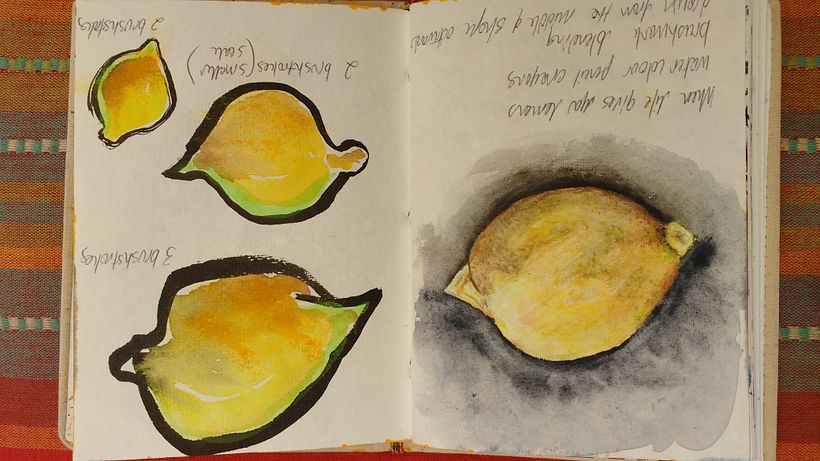 When life gives you lemons
water colour pencil crayons
brushwork blending
from the middle of shape outwards
3 brushstrokes
2 brushstrokes (smaller
scale)
2 brushstrokes